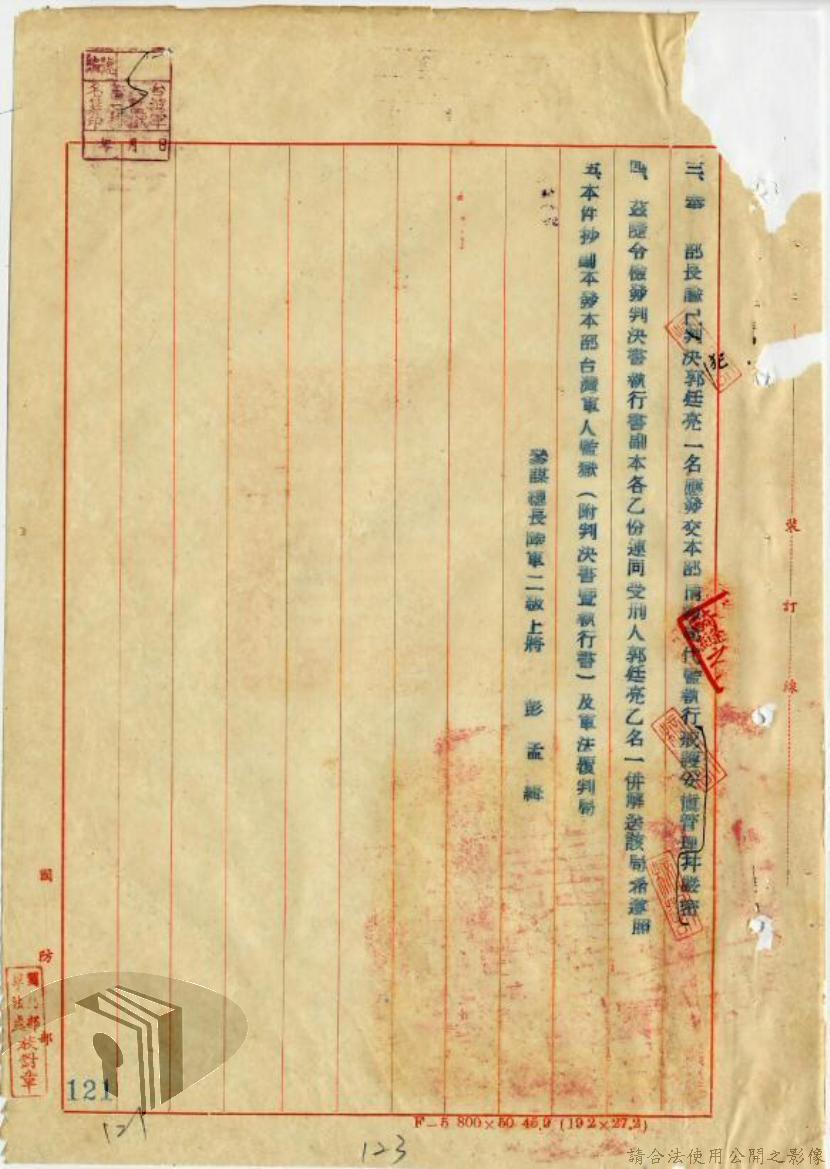 裝訂線
三、奉 部長諭「判決郭廷亮一名應發交本部情 代監執行戒護 管理并嚴密」
犯
四、茲隨令檢發判決書執行書副本各乙份連同受刑人郭廷亮乙名一併解送該局希遵照
五、本件抄副本發本部台灣軍人監獄(附判決書暨執行書)及軍法覆判局
參謀總長陸軍二級上將 彭孟緝
年 月 日
國防部
校對章
121
121
123
F—5 800×50 45.9 (19.2×27.2)
請合法使用公開之影像